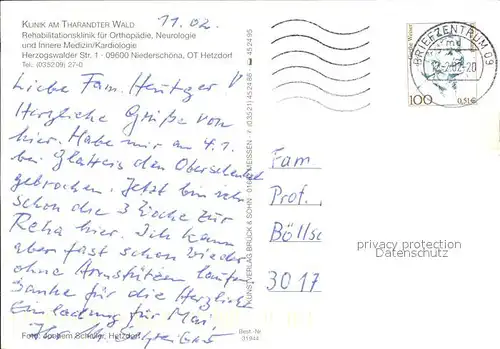 KLINIK AM THARANDTER WALD
Rehabilitationsklinik für Orthopädie, Neurologie
und Innere Medizin/Kardiologie
Herzogswalder Str. 1 · 09600 Niederschöna, OT Hetzdorf
Tel.: (035209) 27-0
11.02.
Liebe Fam. Heutger
Herzliche Grüße von
hier. Habe mir am 4.1.
bei Glatteis den Oberschenkel
gebrochen. Jetzt bin ich
schon die 3. Woche zur
Reha hier. Ich kann
aber fast schon wieder
ohne Armstützen laufen
Danke für die Herzliche
Einladung für Mai,
Ihr
Foto: Jochem Schüller, Hetzdorf
KUNSTVERLAG BRÜCK & SOHN · 01662 MEISSEN · F (03521) 45 24 86 45 24 95
Best.-Nr.
31944
BRIEFZENTRUM 09
12.-2.02-20
100
0,51€
Fam
Prof.
Böllsc
3017
privacy protection
Datenschutz